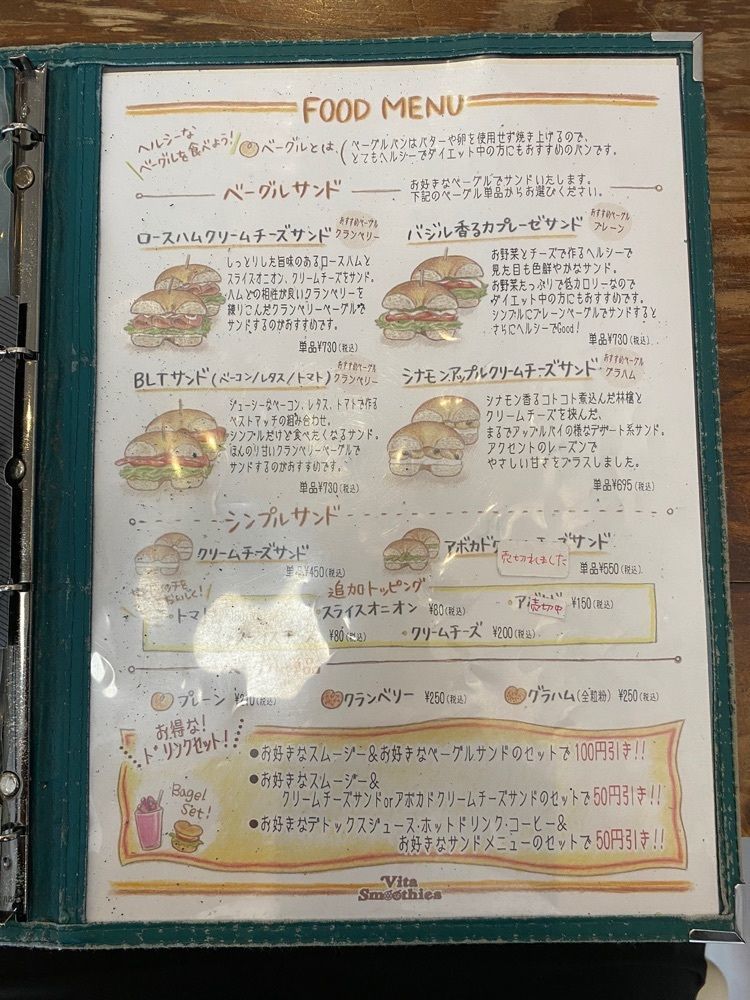 FOOD MENU
ヘルシーな
ベーグルを食べよう!
ベーグルとは、
ベーグルパンはバターや卵を使用せず焼き上げるので、
とてもヘルシーでダイエット中の方にもおすすめのパンです。
ベーグルサンド
お好きなベーグルでサンドいたします。
下記のベーグル単品からお選びください。
ロースハムクリームチーズサンド
おすすめベーグル
クランベリー
しっとりした旨味のあるロースハムと
スライスオニオン、クリームチーズをサンド。
ハムとの相性が良いクランベリーを
練りこんだクランベリーベーグルで
サンドするのがおすすめです。
単品¥730(税込)
バジル香るカプレーゼサンド
おすすめベーグル
プレーン
お野菜とチーズで作るヘルシーで
見た目も色鮮やかなサンド。
お野菜たっぷりで低カロリーなので
ダイエット中の方にもおすすめです。
シンプルにプレーンベーグルでサンドすると
さらにヘルシーでGood!
単品¥730(税込)
BLTサンド(ベーコン/レタス/トマト)
おすすめベーグル
クランベリー
ジューシーなベーコン、レタス、トマトで作る
ベストマッチの組み合わせ。
シンプルだけど食べたくなるサンド。
ほんのり甘いクランベリーベーグルで
サンドするのがおすすめです。
単品¥730(税込)
シナモンアップルクリームチーズサンド
おすすめベーグル
グラハム
シナモン香るコトコト煮込んだ林檎と
クリームチーズを挟んだ、
まるでアップルパイの様なデザート系サンド。
アクセントのレーズンで
やさしい甘さをプラスしました。
単品¥695(税込)
シンプルサンド
クリームチーズサンド
単品¥450(税込)
アボカドク ズサンド
売切れました
単品¥550(税込)
おいしく!
追加トッピング
トマ
スライスオニオン ¥80(税込)
売切中 ¥150(税込)
¥80(税込)
クリームチーズ ¥200(税込)
プレーン (税込)
クランベリー ¥250(税込)
グラハム(全粒粉) ¥250(税込)
お得な!
ドリンクセット!
●お好きなスムージー&お好きなベーグルサンドのセットで100円引き!!
●お好きなスムージー&
クリームチーズサンドorアボカドクリームチーズサンドのセットで50円引き!!
●お好きなデトックスジュース・ホットドリンク・コーヒー&
お好きなサンドメニューのセットで50円引き!!
Bagel
Set!
Vita
Smoothies